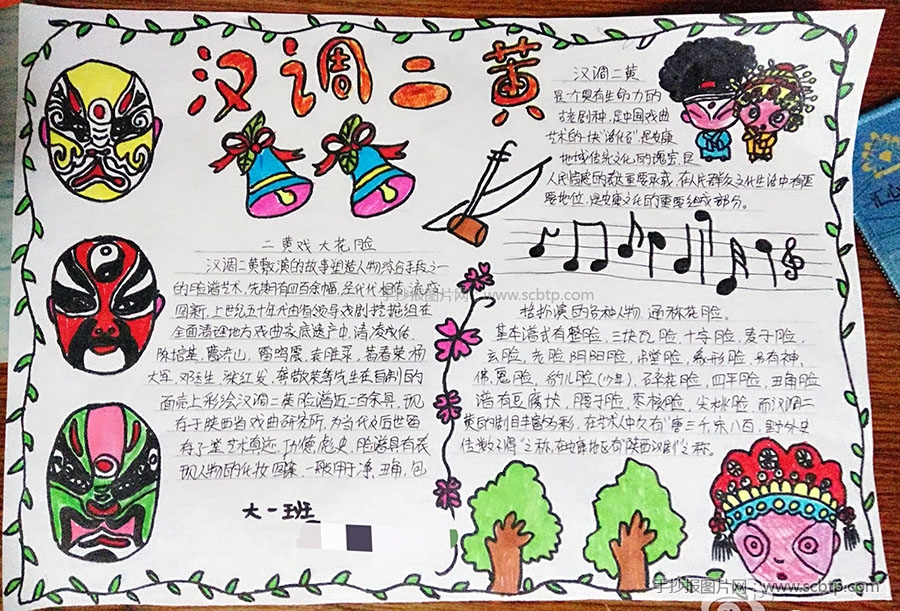 汉调二黄
汉调二黄
是个具有生命力的
古老剧种,是中国戏曲
艺术的一块"活化石",是安康
地域传统文化的瑰宝,是
人民情感的重要承载,在人民群众文化生活中有重
要地位,是安康文化的重要组成部分。
二黄戏 大花脸
汉调二黄敷演的故事塑造人物
的脸谱艺术,先期有四百余幅,是代代相传
上世纪五十年代由省领导戏剧挖掘组在
全面清理地方戏曲家底遗产中,请
大军、邓玉生、张红发、等先生在自制的
面壳上彩绘汉调二黄脸谱近二百余具,现
存于陕西省戏曲研究所,为当代及后世留
存了一堂艺术真迹,功德彪史,脸谱具有表
现人物的化妆图案,一般用于净、丑角,包
手抄报图片网:www.scbtp.com
括扮演的各种人物,通称花脸。
基本谱式有整脸,三块瓦脸,十字脸,麦子脸,
元脸,阴阳脸,点堂脸,象形脸,另有神,
佛,鬼脸,幼儿脸(少年),碎花脸,四平脸,丑角脸
谱有豆腐块,腰子脸,枣核脸,尖桃脸,而汉调二
黄的剧目丰富多彩,在艺术中久有"唐三千,宋八百,野外史
传数不清"之称,在安康地区有"陕西汉剧"之称。
大一班
手抄报图片网:www.scbtp.com